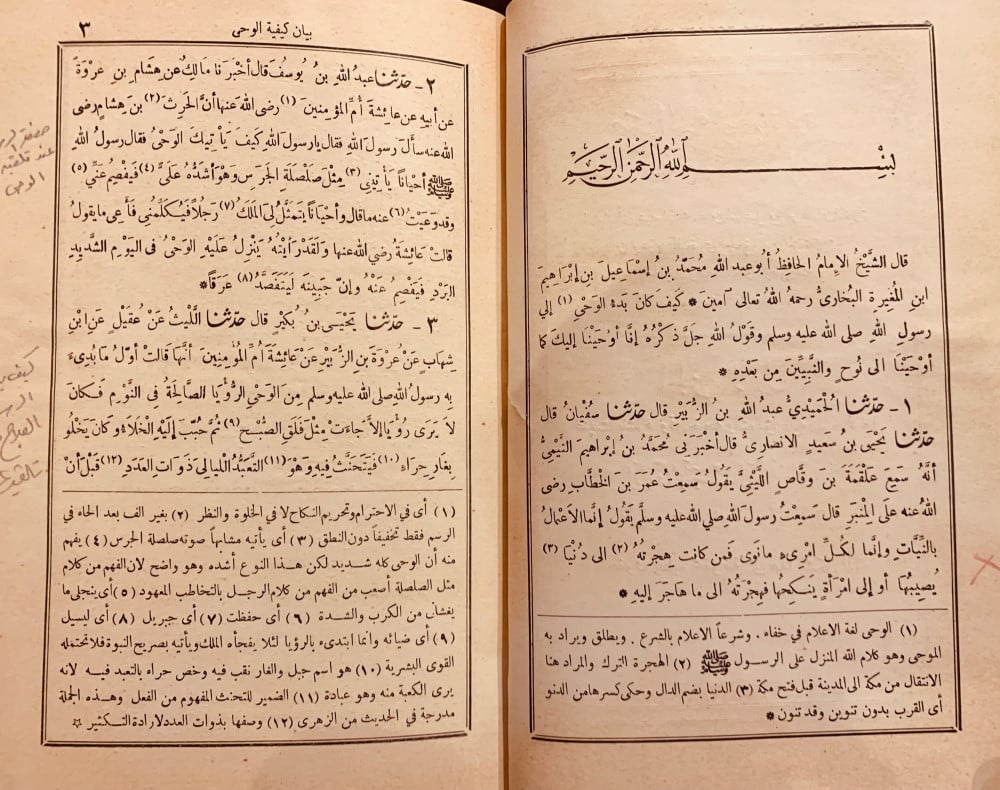 بسم الله الرحمن الرحيم
قال الشَّيْخُ الإمامُ الحافِظُ أبُو عبدِ اللهِ مُحَمَّدُ بنُ إسْماعِيلَ بنِ إبْراهِيمَ
ابنِ المُغِيرةِ البُخارِىُّ رحمهُ اللهُ تعالى آمينَ * كَيْفَ كانَ بَدْءُ الوَحْىِ (١) إلي
رسولِ اللهِ صلى الله عليه وسلم وقَوْلُ اللهِ جَلَّ ذِكْرُهُ إنَّا أوْحَيْنَا إليكَ كَا
أوْحَيْنَا الى نُوحٍ والنَّبِيِّينَ مِن بَعْدِهِ *
١ – حدّثنا الحُمَيْدِيُّ عبدُ اللهِ بنُ الزُّبَيْرِ قال حدّثنا سُفْيانُ قال
حدّثنا يَحْيَى بنُ سَعِيدٍ الانصارِىُّ قال أخْبَرَنى مُحَمَّدُ بنُ إبْراهِيمَ التَّيْمِىُّ
أنَّهُ سَمِعَ عَلْقَمَةَ بنَ وقَّاصٍ اللَّيْثِيَّ يَقُولُ سَمِعْتُ عُمَرَ بنَ الخَطَّابِ رضى
اللهُ عنه علَى المِنْبَرِ قال سَمِعْتُ رسولَ اللهِ صلى الله عليه وسلَّم يَقُولُ إنَّما الاعْمالُ
بالنِّيَّاتِ وإنَّما لكُلِّ امْرِىءٍ مانَوَى فَمن كانت هِجْرتُهُ (٢) الى دُنْيَا (٣)
يُصِيبُهَا أو إلى امْرَأةٍ يَنْكِحُها فهِجْرَتُهُ الى ما هاجَرَ إليهِ *
(١) الوحى لغة الاعلام في خفاء. وشرعاً الاعلام بالشرع. ويطلق ويراد به
الموحى وهو كلام الله المنزل على الرسول ﷺ (٢) الهجرة الترك والمراد هنا
الانتقال من مكة الى المدينة قبل فتح مكة (٣) الدنيا بضم الدال وحكى كسرها من الدنو
أى القرب بدون تنوين وقد تنون *
بيان كيفية الوحى
٣
٢ – حدّثنا عبدُ اللهِ بنُ يُوسُفَ قال أخْبَرَنا مالِكٌ عن هِشامِ بنِ عُرْوَةَ
عن أبيهِ عن عائِشَةَ أُمِّ المُؤْمِنِينَ (١) رضى الله عنها أنَّ الحَرِثَ (٢) بنَ هِشامٍ رضى
الله عنه سألَ رسولَ اللهِ فقال يا رسولَ اللهِ كَيفَ يَأْتِيكَ الوَحْىُ فقال رسولُ اللهِ
ﷺ أحْيَاناً يَأْتِينِى (٣) مِثْلَ صَلْصَلَةِ الجَرَسِ وهوَ أشَدُّهُ علَىَّ (٤) فَيَفْصِمُ عنِّي (٥)
وقدوَعَيْتُ (٦) عنه ما قال وأحْيَاناً يتَمَثَّلُ لِىَ المَلَكُ (٧) رَجُلاً فَيُكَلِّمُنِى فأعِى ما يقولُ
قالتْ عائِشَةُ رضي الله عنها ولَقَدْ رَأيْتُهُ يَنْزِلُ عَلَيْهِ الوَحْىُ فى اليَوْمِ الشَّدِيدِ
البَرْدِ فَيَفْصِمُ عَنْهُ وإنّ جَبِينَهُ لَيَتَفَصَّدُ (٨) عَرَقاً *
٣ – حدّثنا يَحْيَى بنُ بُكَيْرٍ قال حدّثنا اللَّيْثُ عَنْ عُقَيْلٍ عَنِ ابْنِ
شِهابٍ عَنْ عُرْوَةَ بنِ الزُّبَيْرِ عَنْ عائِشَةَ أُمِّ المُؤْمِنِينَ أنَّها قالتْ أوَّلُ ما بُدِىءَ
بِهِ رسولُ اللهِ صلى الله عليه وسلم مِنَ الوَحْىِ الرُّؤْيا الصَّالِحَةُ فى النَّوْمِ فَكانَ
لا يَرَى رُؤْيا إلاَّ جاءَتْ مِثْلَ فَلَقِ الصُّبْحِ (٩) ثُمَّ حُبِّبَ إلَيْهِ الخَلاَءُ وكان يَخْلُو
بِغارِ حِرَاءٍ (١٠) فَيَتَحَنَّثُ فِيهِ وهْوَ (١١) التَّعَبُّدُ اللَّيالِيَ ذَوَاتِ العَدَدِ (١٢) قَبْلَ أنْ
(١) أى في الاحترام وتحريم النكاح لا في الخلوة والنظر (٢) بغير الف بعد الحاء في
الرسم فقط تخفيفاً دون النطق (٣) أى يأتيه مشابهاً صوته صلصلة الجرس (٤) يفهم
منه أن الوحى كله شديد لكن هذا النوع أشده وهو واضح لان الفهم من كلام
مثل الصلصلة أصعب من الفهم من كلام الرجل بالتخاطب المعهود (٥) أى ينجلى ما
يغشان من الكرب والشدة (٦) أى حفظت (٧) أى جبريل (٨) أى ليسيل
(٩) أى ضيائه وانما ابتدىء بالرؤيا لئلا يفجأه الملك ويأتيه بصريح النبوة فلا تحتمله
القوى البشرية (١٠) هو اسم جبل والغار نقب فيه وخص حراء بالتعبد فيه لانه
يرى الكعبة منه وهو عبادة (١١) الضمير للتحنث المفهوم من الفعل وهذه الجملة
مدرجة في الحديث من الزهرى (١٢) وصفها بذوات العدد لارادة التكثير
الوحى